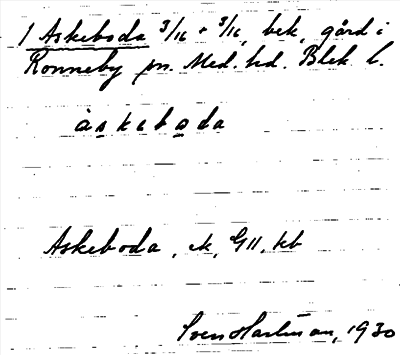 1 Askeboda 3/16 + 3/16, bek, gård i
Ronneby sn. Med. hd. Blek. l.
àskeboda
Askeboda, ek, G11, kb
Sven Hartman, 1930